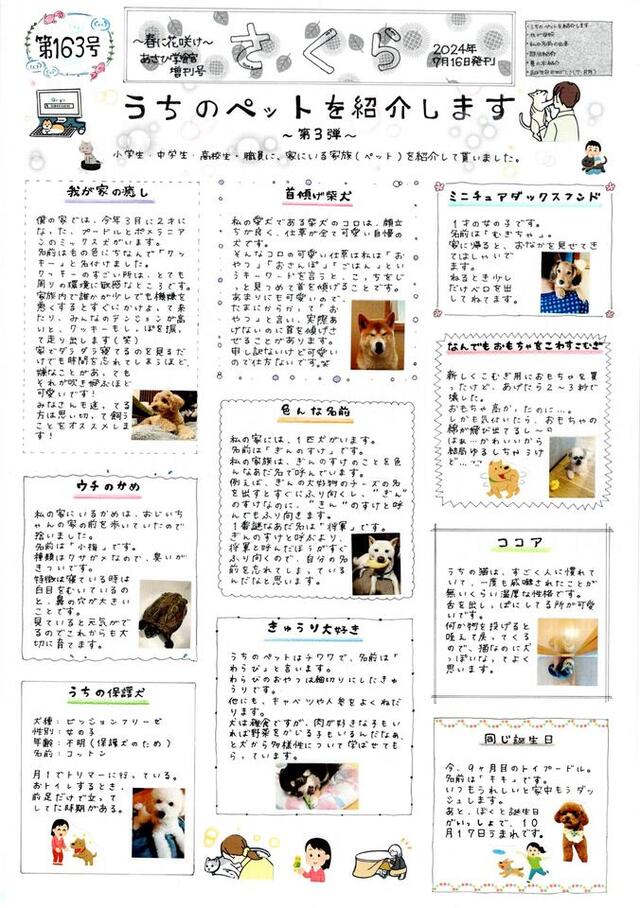 第163号
～春に花咲け～
あさひ学館
増刊号
さくら
2024年
7月16日発刊
うちのペットを紹介します
～第3弾～
小学生・中学生・高校生・職員に、家にいる家族(ペット)を紹介して貰いました。
我が家の癒し
僕の家では、今年3月に2才に
なった、プードルとポメラニア
ンのミックス犬がいます。
名前はもの色にちなんで「クッ
キー」と名付けました。
クッキーのすごい所は、とても
周りの環境に敏感なところです。
家族内で誰かが少しでも機嫌を
悪くするとすぐにかけよって来
たり、みんなのテンションが高
いと、クッキーもしっぽを振っ
て走り出します(笑)
家でダラダラ寝てるのを見るだ
けでも時間を忘れてしまうほど、
嫌なことがあっても
それが吹き飛ぶほど
可愛いです!
みなさんも迷ってる
方は思い切って飼う
ことをオススメしま
す!
ウチのかめ
私の家にいるかめは、おじいち
ゃんの家の前を歩いていたので
捨いました。
名前は「小梅」です。
種類はクサガメなので、臭いが
きついです。
特徴は寝ている時は
白目をむいているの
と、鼻の穴が大きい
ことです。
見ていると元気がで
るのでこれからも大
切に育てます。
うちの保護犬
犬種：ビッションフリーゼ
性別：女の子
年齢：不明(保護犬のため)
名前：コットン
月1でトリマーに行っている。
おトイレするとき、
前足だけで立って
してた時期がある。
首傾げ柴犬
私の愛犬である柴犬のコロは、顔立
ちが良く、仕草が全て可愛い自慢の
犬です。
そんなコロの可愛い仕草は私は「お
やつ」「おさんぽ」「ごはん」とい
うキーワードを言うと、こっちをじ
っと見つめて首を傾げることです。
あまりにも可愛いので、
たまにからかって「お
やつ」と言い、実際あ
げないのに首を傾げさ
せることがあります。
申し訳ないけど可愛い
ので仕方ないです。笑
色んな名前
私の家には、1匹犬がいます。
名前は「ぎんのすけ」です。
私の家族は、ぎんのすけのことを色
んなあだ名で呼んでいます。
例えば、ぎんの大好物のチーズの名
を出すとすぐにふり向くし、"ぎん"
のすけなのに、"きん"のすけと呼
んでもふり向きます。
1番謎なあだ名は「将軍」です。
ぎんのすけと呼ぶより、
将軍と呼んだほうがすぐ
ふり向くので、自分の名
前を忘れてしまっている
んだなと思います。
きゅうり大好き
うちのペットはチワワで、名前は「
わらび」と言います。
わらびのおやつは細切りにしたきゅ
うりです。
他にも、キャベツや人参をよくねだ
ります。
犬は雑食ですが、肉が好きな子もい
れば野菜をかじる子もいるんだなぁ、
と犬から多様性について学ばせても
らっています。
ミニチュアダックスフンド
1才の女の子です。
名前は「むぎちゃ」。
家に帰ると、おなかを見せてき
てはしゃいで
ます。
ねるとき少し
だけベロを出
してねてます。
なんでもおもちゃをこわすこむぎ
新しくこむぎ用におもちゃを買
ったけど、あげたら2～3秒で
壊した。
おもちゃ高かったのに…。
しかも気付いたら、おもちゃの
綿が飛び出てるし～
はぁ…かわいいから
結局ゆるしちゃうけ
ど…
ココア
うちの猫は、すごく人に慣れて
いて、一度も威嚇されたことが
無いくらい温厚な性格です。
舌を出しっぱにしてる所が可愛
いです。
何か物を投げると
咥えて戻ってくる
ので、猫なのに犬
っぽいなってよく
思います。
同じ誕生日
今、9ヶ月目のトイプードル。
名前は「キキ」です。
いつもうれしいと家中もうダッ
シュします。
あと、ぼくと誕生日
がいっしょで、10
月17日うまれです。